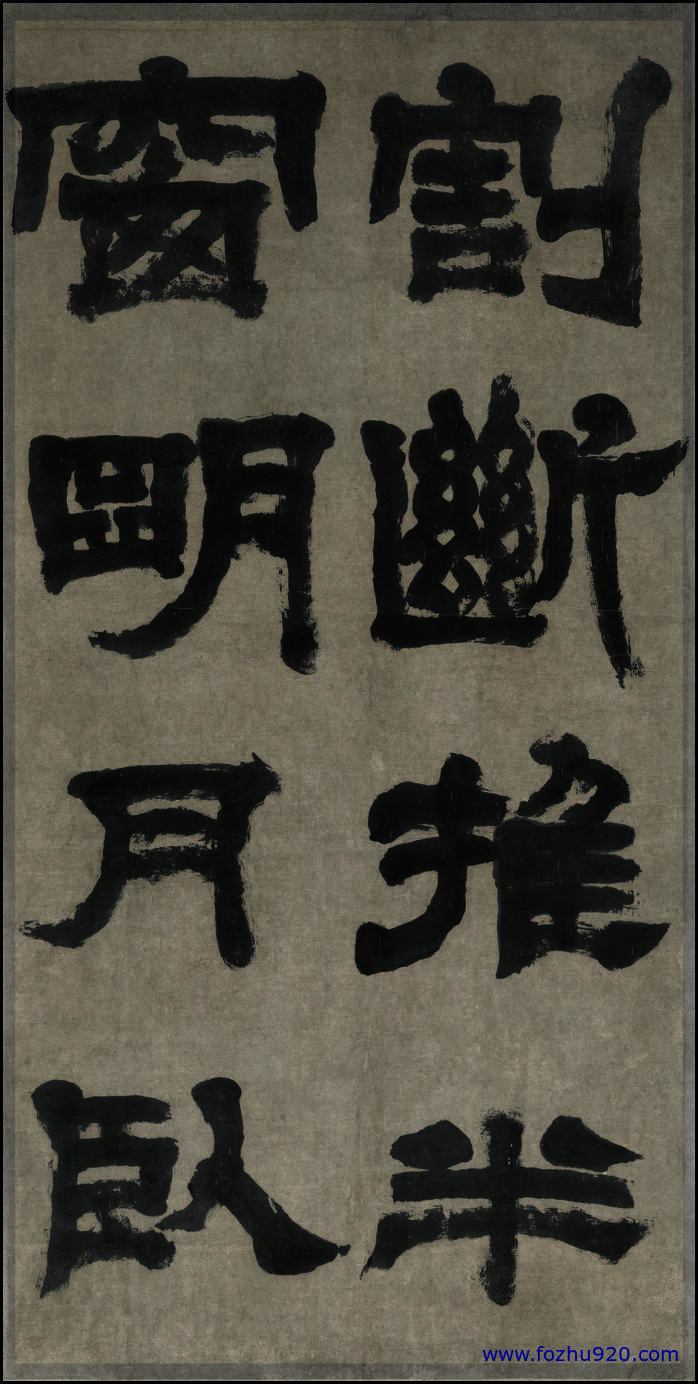 割斷推半
窗明月臥
www.fozhu920.com